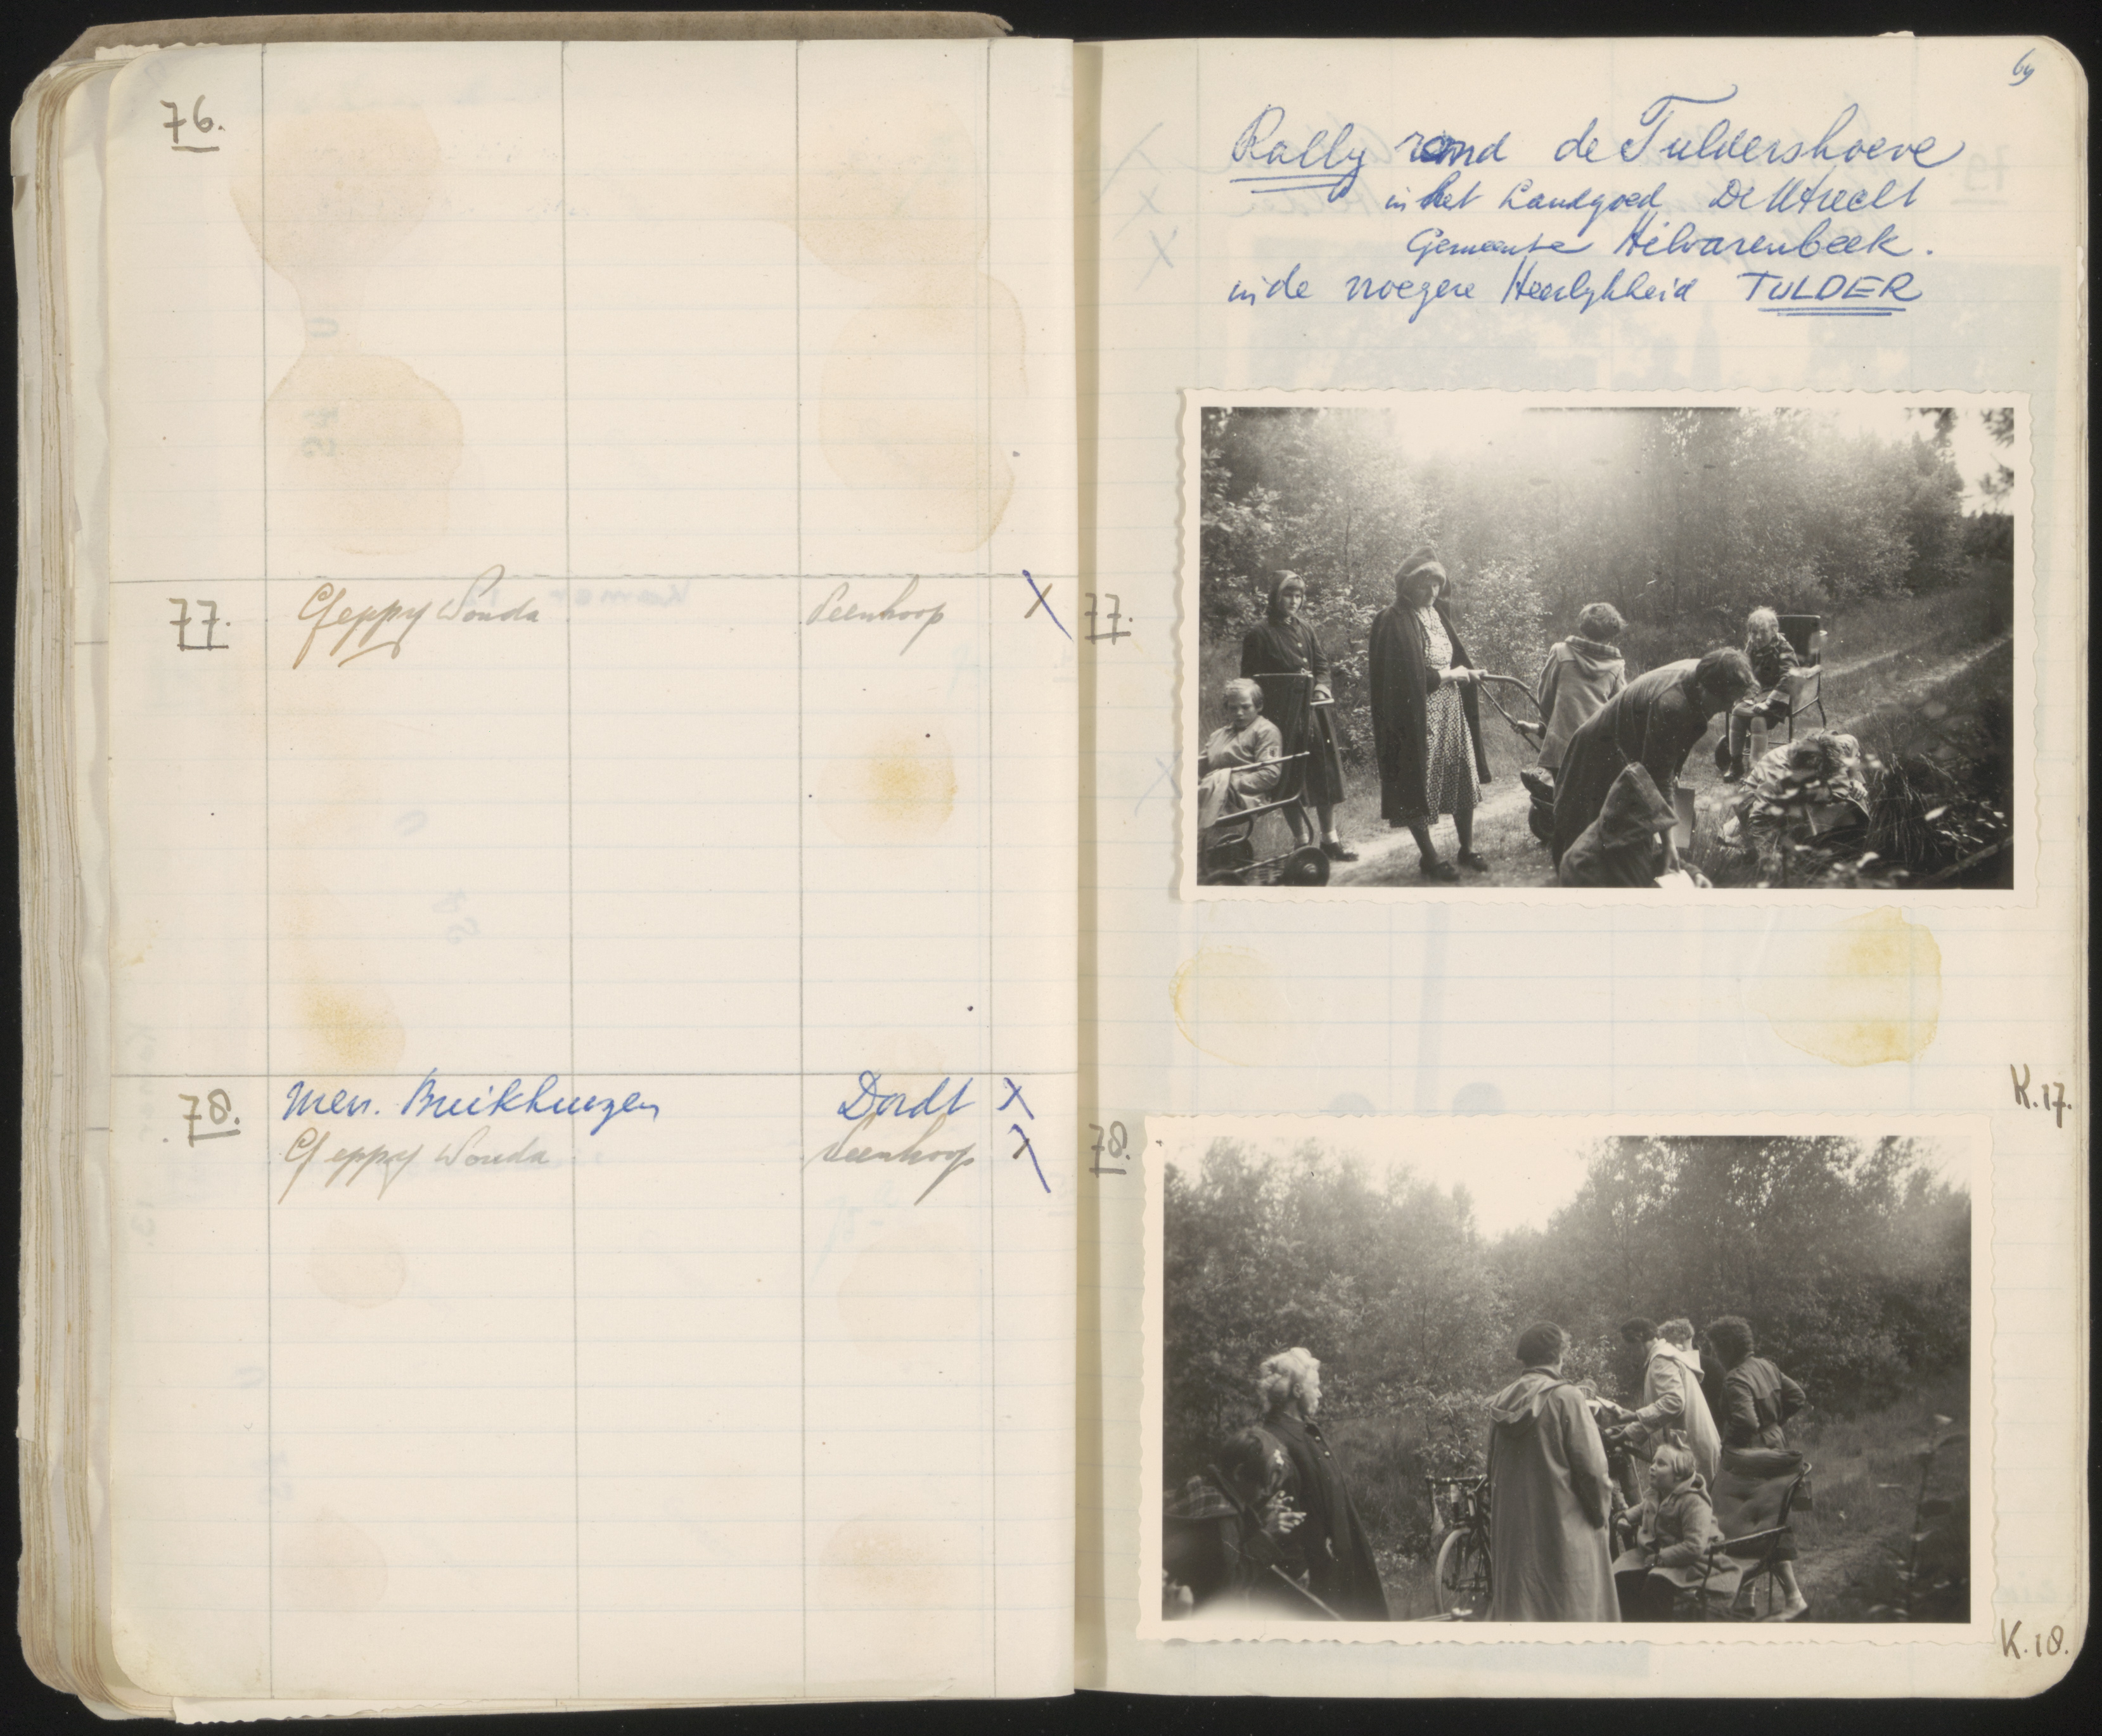 76.
77. Geppy Wouda Veenhoop X
78. Mevr. Buikhuizen Dordt X
Geppy Wouda Veenhoop X
69
Rally rond de Tuldershoeve
in het Landgoed De Utrecht
Gemeente Hilvarenbeek.
in de vroegere Heerlykheid TULDER
77.
K.17.
78.
K.18.